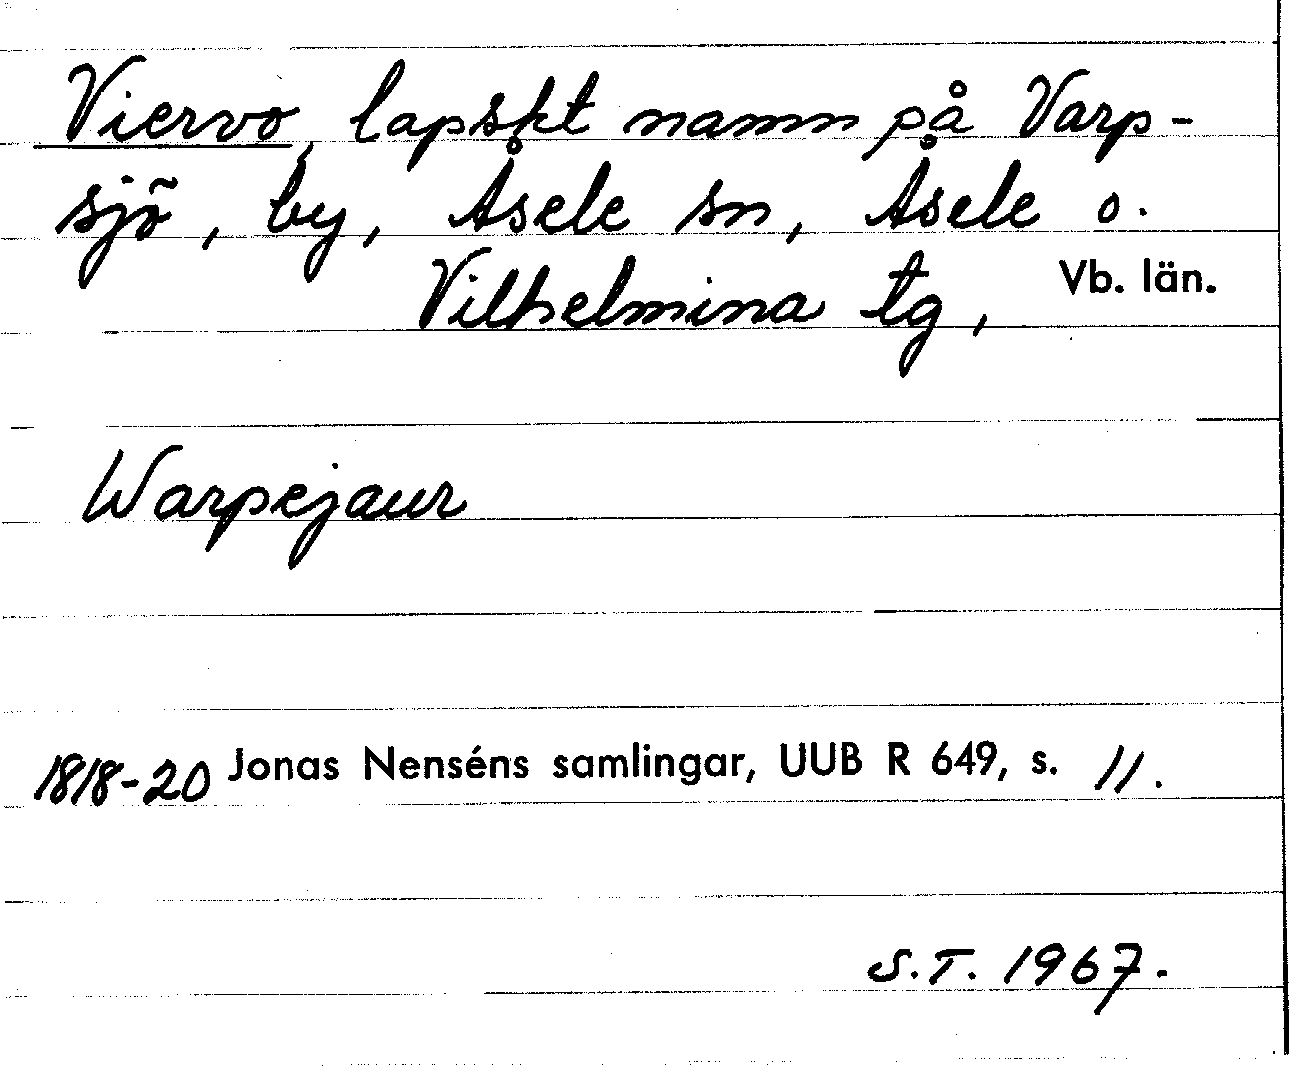 Viervo, lapskt namn på Varp-
sjö, by, Åsele sn, Åsele o.
Vilhelmina tg, Vb. län.
Warpejaur
1818-20 Jonas Nenséns samlingar, UUB R 649, s. 11.
S.T. 1967.